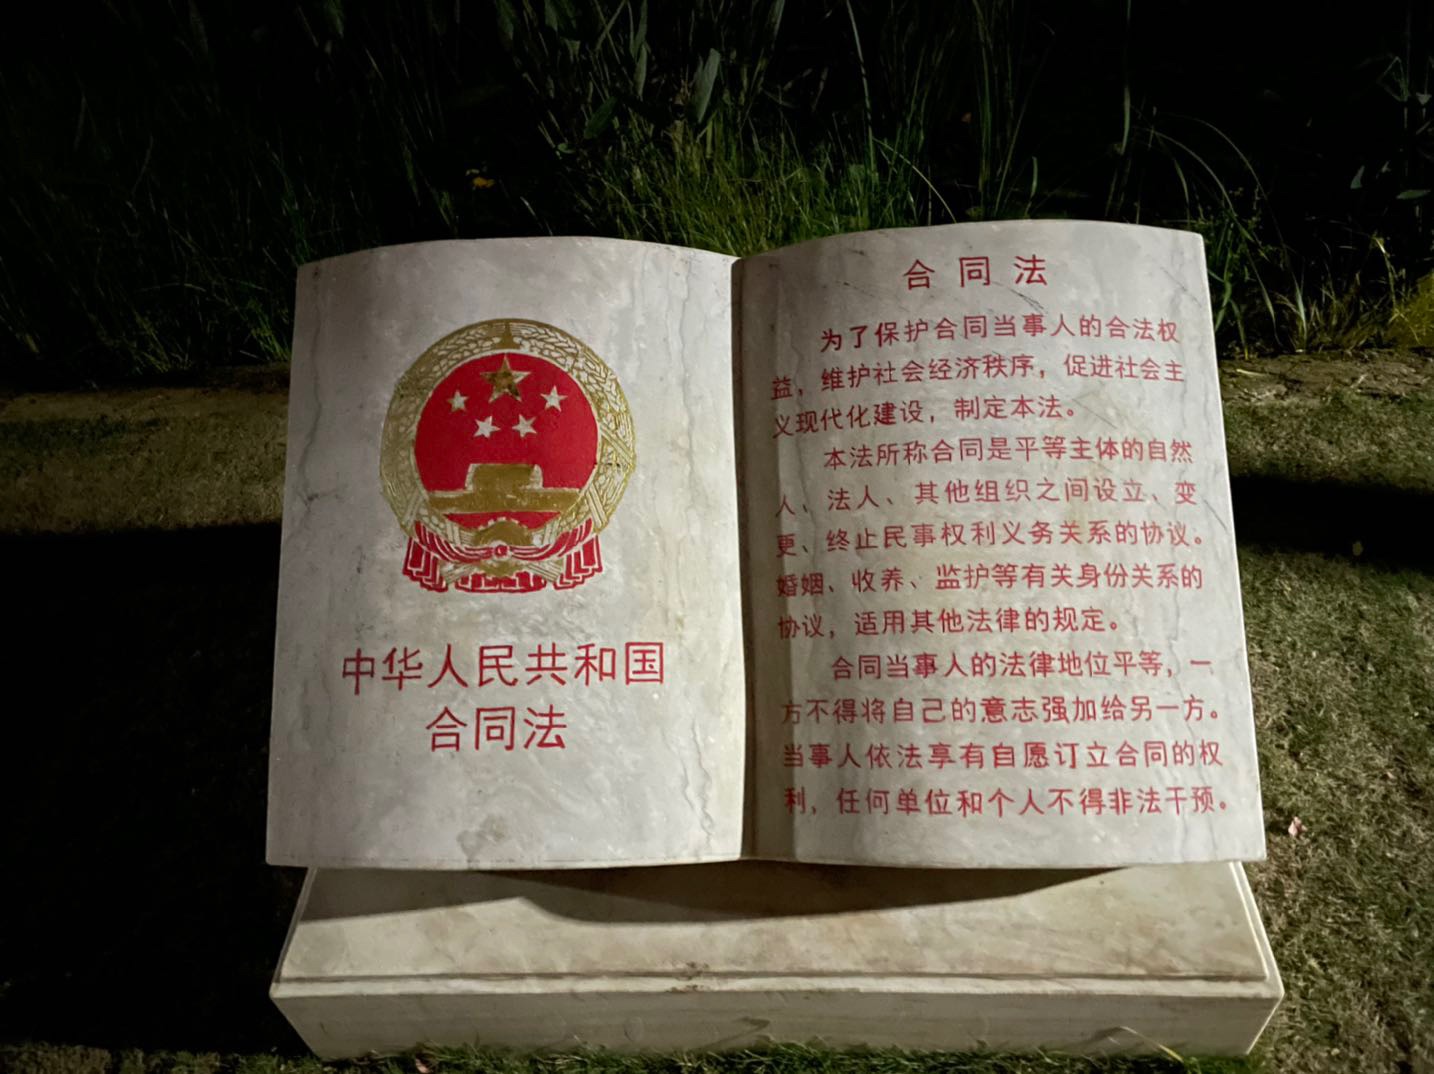 中华人民共和国
合同法
合同法
为了保护合同当事人的合法权
益，维护社会经济秩序，促进社会主
义现代化建设，制定本法。
本法所称合同是平等主体的自然
人、法人、其他组织之间设立、变
更、终止民事权利义务关系的协议。
婚姻、收养、监护等有关身份关系的
协议，适用其他法律的规定。
合同当事人的法律地位平等，一
方不得将自己的意志强加给另一方。
当事人依法享有自愿订立合同的权
利，任何单位和个人不得非法干预。